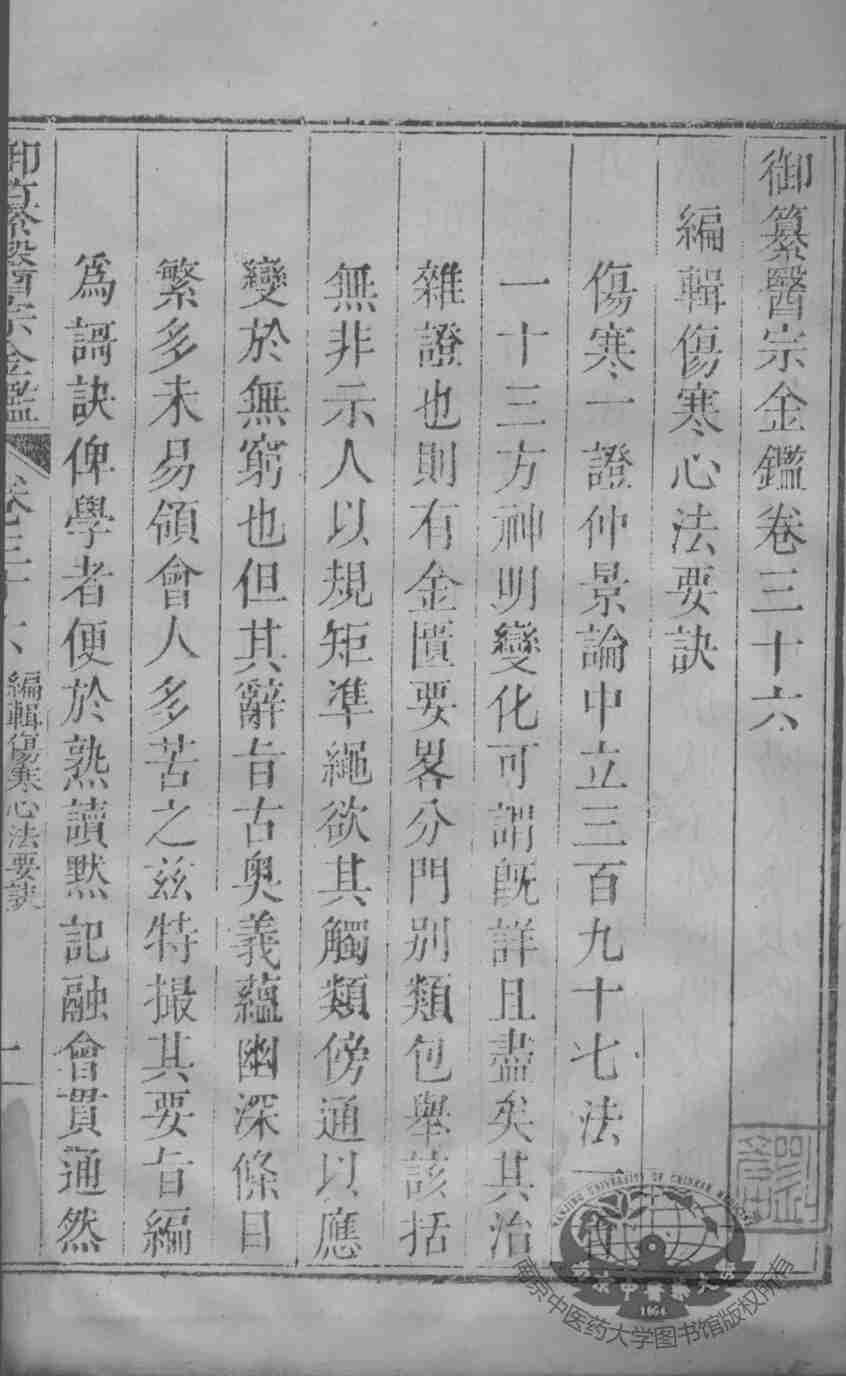 御纂醫宗金鑑卷三十六
編輯傷寒心法要訣
傷寒一證仲景論中立三百九十七法一百
一十三方神明變化可謂旣詳且盡矣其治
雜證也則有金匱要畧分門別類包舉該括
無非示人以規矩準繩欲其觸類傍通以應
變於無窮也但其辭旨古奧義蘊幽深條目
繁多未易領會人多苦之茲特撮其要旨編
為謌訣俾學者便於熟讀默記融會貫通然
御纂醫宗金鑑 卷三十六 編輯傷寒心法要訣 一
NANJING UNIVERSITY OF CHINESE MEDICINE
南京中醫藥大學
1954
南京中医药大学图书馆版权所有